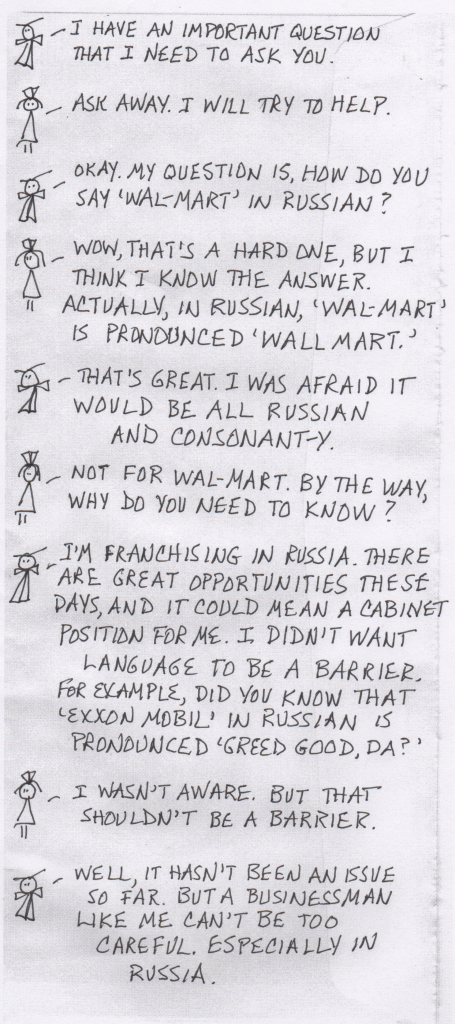 I HAVE AN IMPORTANT QUESTION
THAT I NEED TO ASK YOU.
ASK AWAY. I WILL TRY TO HELP.
OKAY. MY QUESTION IS, HOW DO YOU
SAY 'WAL-MART' IN RUSSIAN?
WOW, THAT'S A HARD ONE, BUT I
THINK I KNOW THE ANSWER.
ACTUALLY, IN RUSSIAN, 'WAL-MART'
IS PRONOUNCED 'WALL MART.'
THAT'S GREAT. I WAS AFRAID IT
WOULD BE ALL RUSSIAN
AND CONSONANT-Y.
NOT FOR WAL-MART. BY THE WAY,
WHY DO YOU NEED TO KNOW?
I'M FRANCHISING IN RUSSIA. THERE
ARE GREAT OPPORTUNITIES THESE
DAYS, AND IT COULD MEAN A CABINET
POSITION FOR ME. I DIDN'T WANT
LANGUAGE TO BE A BARRIER.
FOR EXAMPLE, DID YOU KNOW THAT
'EXXON MOBIL' IN RUSSIAN IS
PRONOUNCED 'GREED GOOD, DA?'
I WASN'T AWARE. BUT THAT
SHOULDN'T BE A BARRIER.
WELL, IT HASN'T BEEN AN ISSUE
SO FAR. BUT A BUSINESSMAN
LIKE ME CAN'T BE TOO
CAREFUL. ESPECIALLY IN
RUSSIA.